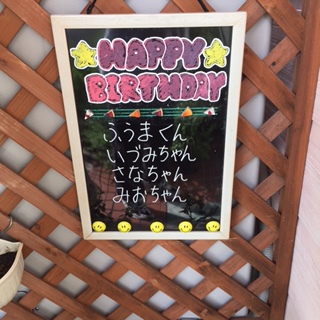 HAPPY
BIRTHDAY
ふうまくん
いづみちゃん
さなちゃん
みおちゃん